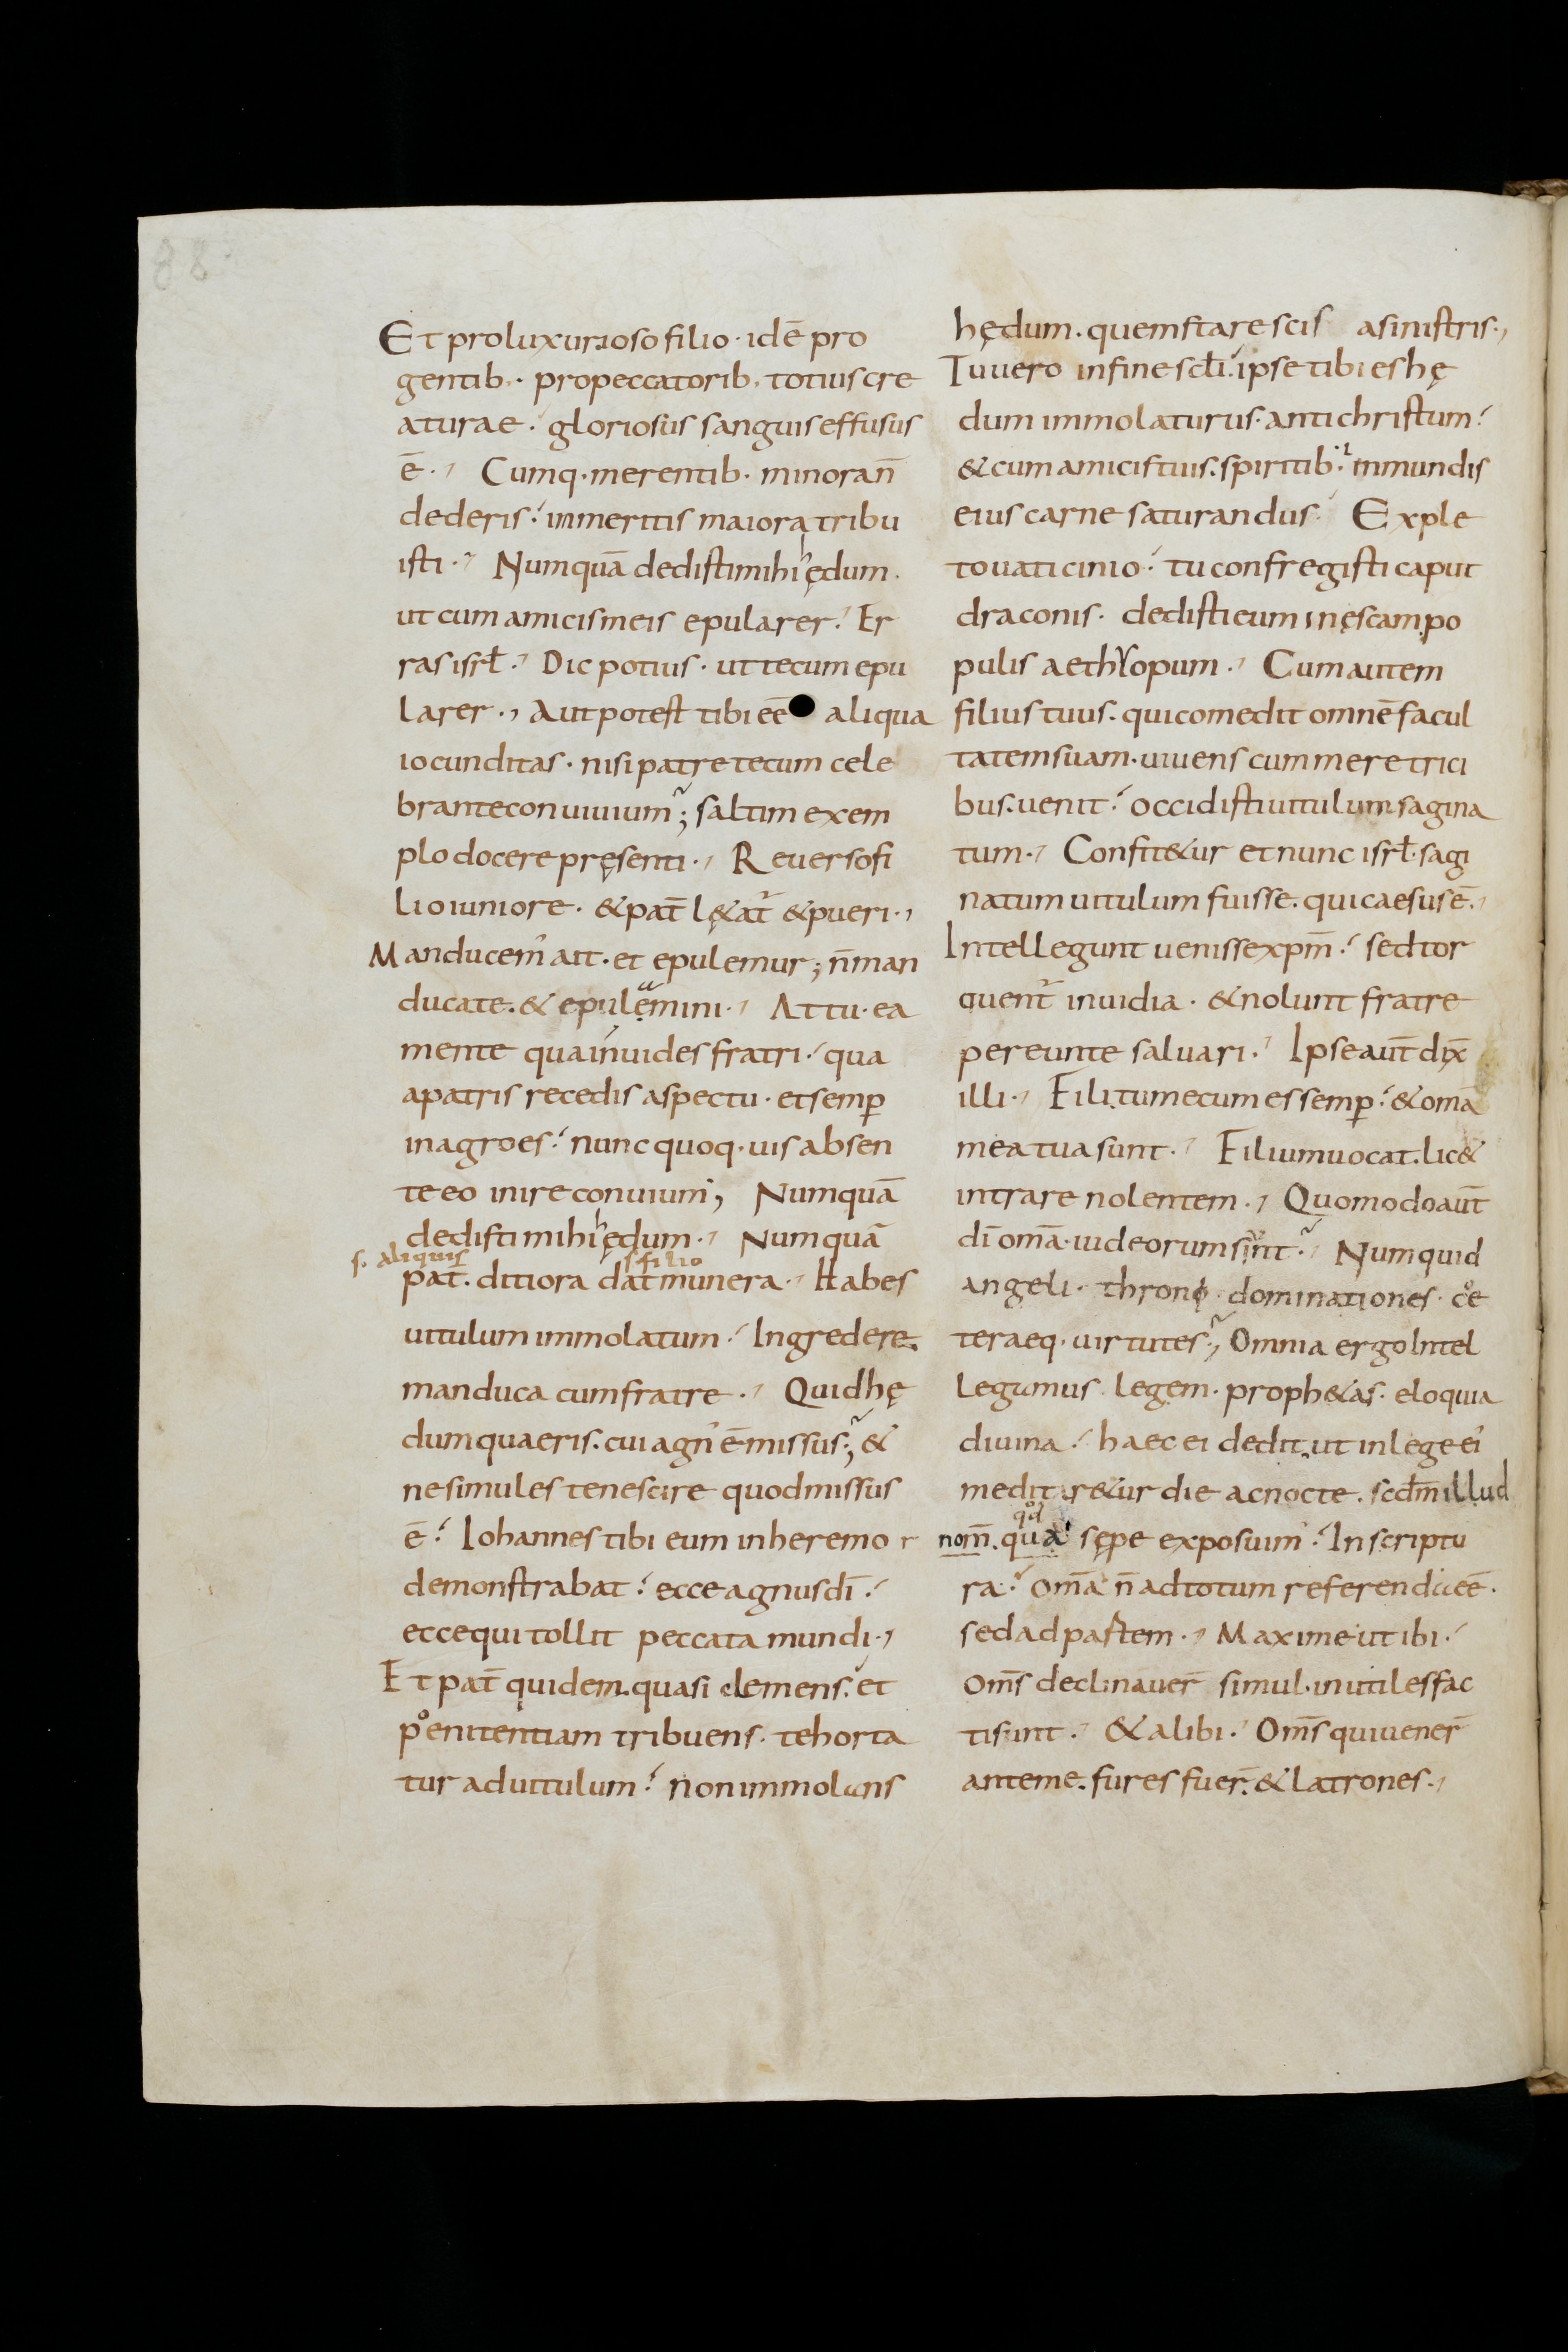 88.
Et proluxurioso filio · idē pro
gentib · propeccatorib · totius cre
aturae · gloriosus sanguis effusus
ē · Cumq · merentib · minoran̄
dederis · inmeritis maiora tribu
isti · Numquā dedisti mihi hędum ·
ut cum amicis meis epularer · Er
ras isrł · Dic potius · ut tecum epu
larer · Aut potest tibi eē aliqua
iocunditas · nisi patre tecum cele
brante conuiuium ; saltim exem
plo docere pręsenti · Reuerso fi
lio iuniore · & pat̄ lę&at̄ & pueri ·
Manducem' ait · et epulemur ; n̄ man
ducate · & epulemini · At tu · ea
mente qua inuides fratri · qua
a patris recedis aspectu · et semp
in agro es · nunc quoq · uis absen
te eo inire conuiuium ; Numquā
dedisti mihi hędum · Numquā
s. aliquis s. filio
pat̄ · ditiora dat munera · Habes
uitulum immolatum · Ingredere ·
manduca cum fratre · Quid hę
dum quaeris · cui agn' ē missus ; &
ne simules te nescire quod missus
ē · Iohannes tibi eum in heremo r
demonstrabat · ecce agnus dī ·
ecce qui tollit peccata mundi ·
Et pat̄ quidem · quasi clemens · et
poenitentiam tribuens · te horta
tur ad uitulum · non immolans
hędum · quem stare scis a sinistris ·
Tu uero in fine scłi · ipse tibi es hę
dum immolaturus · antichristum ·
& cum amicis tuis · spiritib · inmundis
eius carne saturandus · Exple
to uaticinio · tu confregisti caput
draconis · dedisti eum in ęscam po
pulis aethyopum · Cum autem
filius tuus · qui comedit omnē facul
tatem suam · uiuens cum meretrici
bus · uenit · occidisti uitulum sagina
tum · Confit&ur et nunc isrł · sagi
natum uitulum fuisse · qui caesus ē ·
Intellegunt uenisse xpm̄ · sed tor
quent̄ inuidia · & nolunt fratre
pereunte saluari · Ipse aut̄ dix̄
illi · Fili tu mecum es semp · & omā
mea tua sunt · Filium uocat · lic&
intrare nolentem · Quomodo aut̄
dī omā · iudeorum sunt · Numquid
angeli · throni · dominationes · coe
teraeq · uirtutes ; Omnia ergo intel
legamus legem · proph&as · eloquia
diuina · haec ei dedit · ut in lege ei'
meditar&ur die ac nocte · scdm̄ illud
qod
nom̄ · qua sępe exposuim' · In scriptu
ra · omā n̄ ad totum referenda eē ·
sed ad partem · Maxime ut ibi ·
Om̄s declinauer̄ simul · inutiles fac
ti sunt · & alibi · Om̄s qui uener̄
ante me · fures fuer̄ · & latrones ·